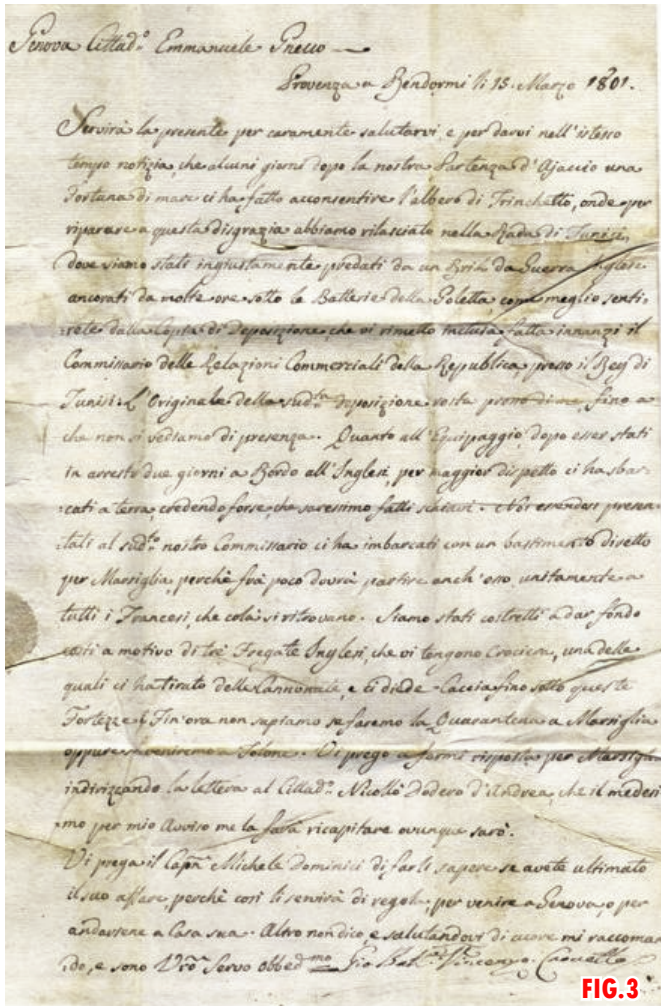 Genova Cittad.º Emmanuele Gnecco
Provenza a Bendormi li 15. Marzo 1801.
Servirà la presente per caramente salutarvi, e per darvi nell'istesso
tempo notizia, che alcuni giorni dopo la nostra Partenza d'Ajaccio una
Fortuna di mare ci ha fatto acconsentire l'albero di Trinchetto, onde per
riparare a questa disgrazia abbiamo rilasciato nella Rada di Tunisi,
dove siamo stati ingiustamente predati da un Brik da Guerra Inglese
ancorati da molte ore sotto le Batterie della Goletta, come meglio senti-
rete dalla Copia di Deposizione, che vi rimetto inclusa fatta innanzi il
Commissario delle Relazioni Commerciali della Republica, presso il Bey di
Tunisi. L'Originale della sud.ta deposizione resta presso di me, fino a
che non si vediamo di presenza. Quanto all'Equipaggio, dopo esser stati
in arresto due giorni a Bordo all'Inglesi, per maggior dispetto ci ha sbar-
cati a terra, credendo forse, che saressimo fatti schiavi. Noi essendosi presen-
tati al sud.to nostro Commissario ci ha imbarcati con un bastimento diretto
per Marsiglia, perchè frà poco dovrà partire anch'esso unitamente a
tutti i Francesi, che colà si ritrovano. Siamo stati costretti a dar fondo
costì a motivo di trè Fregate Inglesi, che vi tengono Crociera, una delle
quali ci ha tirato delle Cannonate, e ci diede Caccia fino sotto queste
Fortezze. Fin'ora non sapiamo se faremo la Quarantena a Marsiglia
oppure se veniremo a Tolone. Vi prego a farmi risposta per Marsiglia
indirizzando la lettera al Cittad.º Nicollò Dodero d'Andrea, che il medesi-
mo per mio Avviso me la farà ricapitare ovunque sarò.
Vi prega il Cap.n Michele Dominici di farli sapere se avete ultimato
il suo affare, perchè così li servirà di regola, per venire a Genova, o per
andarsene a Casa sua. Altro non dico, e salutandovi di cuore mi raccoman-
do, e sono V.ro Servo obbed.mo Gio Batt.a Vincenzo
FIG.3